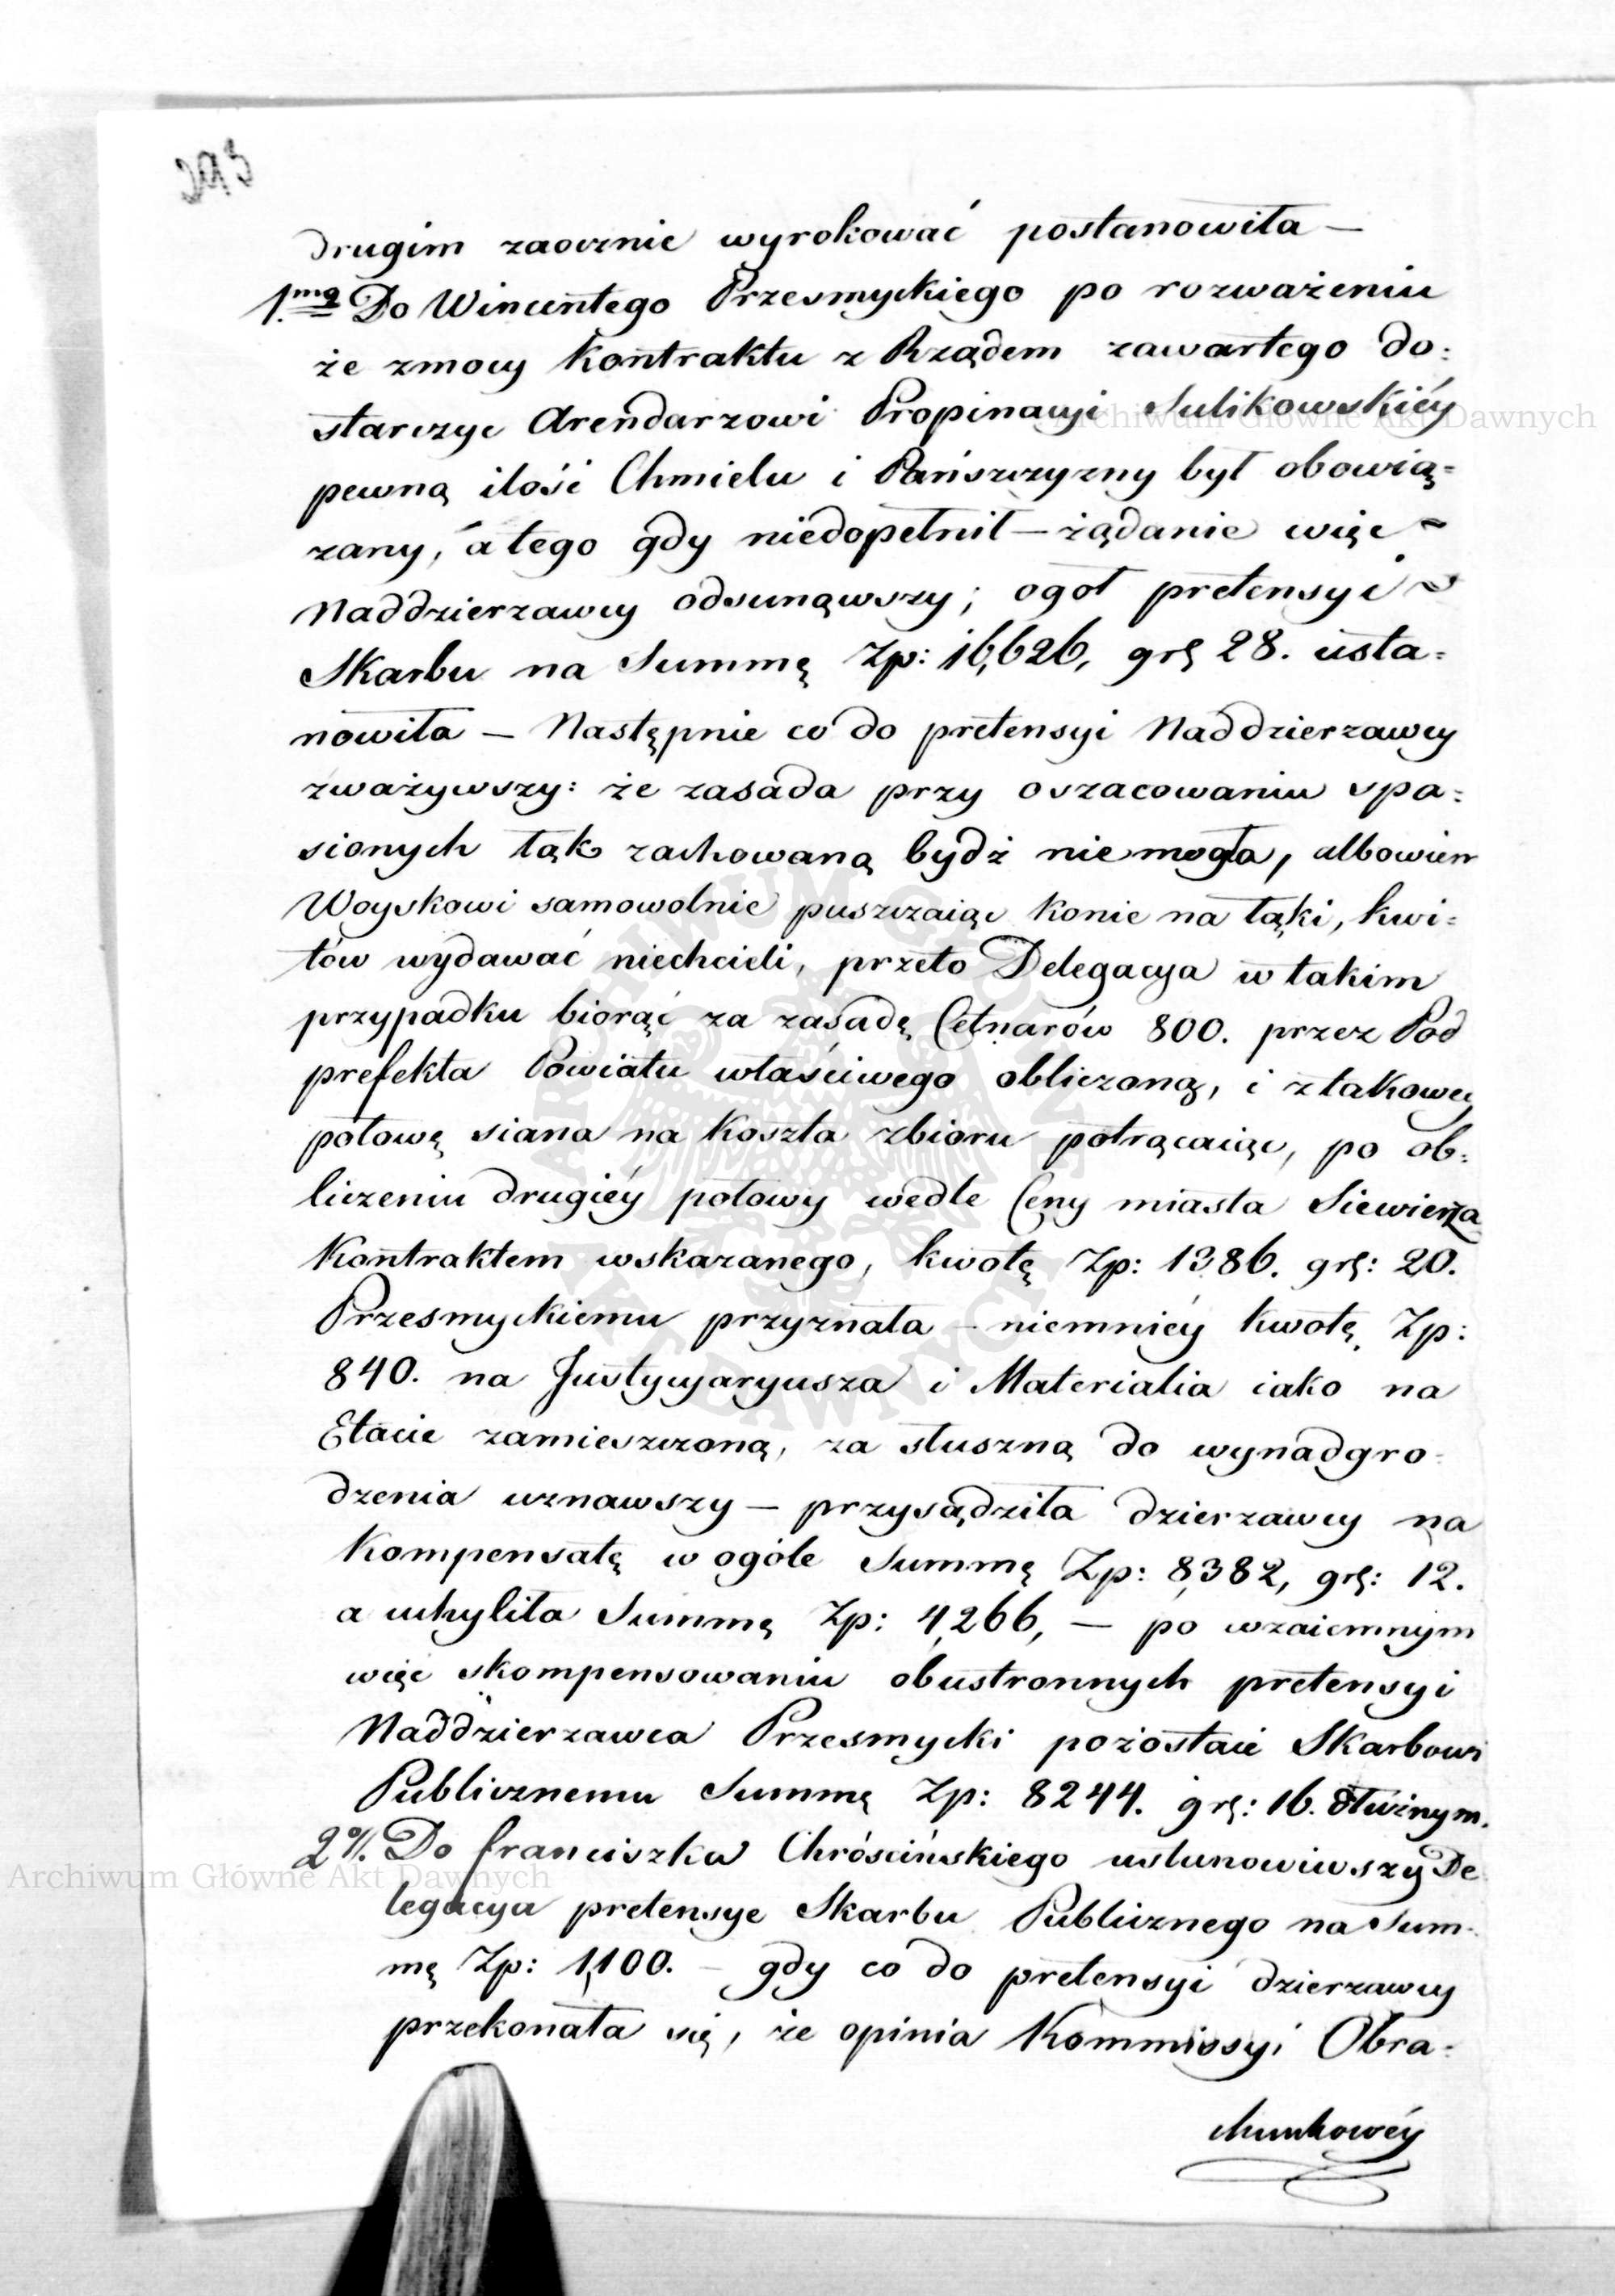 293
drugim zaocznie wyrokować postanowiła —
1.mo Do Wincentego Przesmyckiego po rozważeniu
że zmocy Kontraktu z Rządem zawartego do:
starczyc Arendarzowi Propinacyi Sulikowskiéy
pewną ilośi Chmielu i Pańszczyzny był obowią=
zany, a tego gdy niedopełnił — żądanie więc ~
Naddzierzawcy odsunąwszy; ogoł pretensyi ~
Skarbu na Summę Zp: 16,626, grl 28. usta=
nowiła — Następnie co do pretensyi Naddzierzawcy
zważywszy: że zasada przy oszacowaniu spa=
sionych łąk zachowaną bydź niemogła, albowiem
Woyskowi samowolnie puszczaiąc Konie na łąki, kwi=
tów wydawać niechcieli, przeto Delegacya w takim
przypadku biorąć za zasadę Cetnarów 800. przez Pod
prefekta Powiatu właściwego obliczoną, i ztakowey
połowę siana na Koszta zbioru potrącaiąc, po ob=
liczeniu drugiéy połowy wedle Ceny miasta Siewierza
Kontraktem wskazanego, kwotę Zp: 1386. grl: 20.
Przesmyckiemu przyznała — niemniéy Kwotę Zp:
840. na Justycyaryusza i Materialia iako na
Etacie zamieszczoną, za słuszną do wynadgro=
dzenia uznawszy — przysądziła dzierzawcy na
Kompensatę w ogóle Summę Zp: 8,382, grl: 12.
a uchyliła Summę Zp: 4,266, — po wzaiemnym
więc skompensowaniu obustronnych pretensyi
Naddzierzawca Przesmycki pozostaie Skarbowi
Publicznemu Summę Zp: 8244. grl: 16. dłużnym.
2o/. Do Franciszka Chróścińskiego ustanowiwszy De
legacya pretensye Skarbu Publicznego na Sum=
mę Zp: 1,100. — gdy co do pretensyi dzierzawcy
przekonała się, że opinia Kommissyi Obra=
chunkowéy
Archiwum Główne Akt Dawnych
Archiwum Główne Akt Dawnych